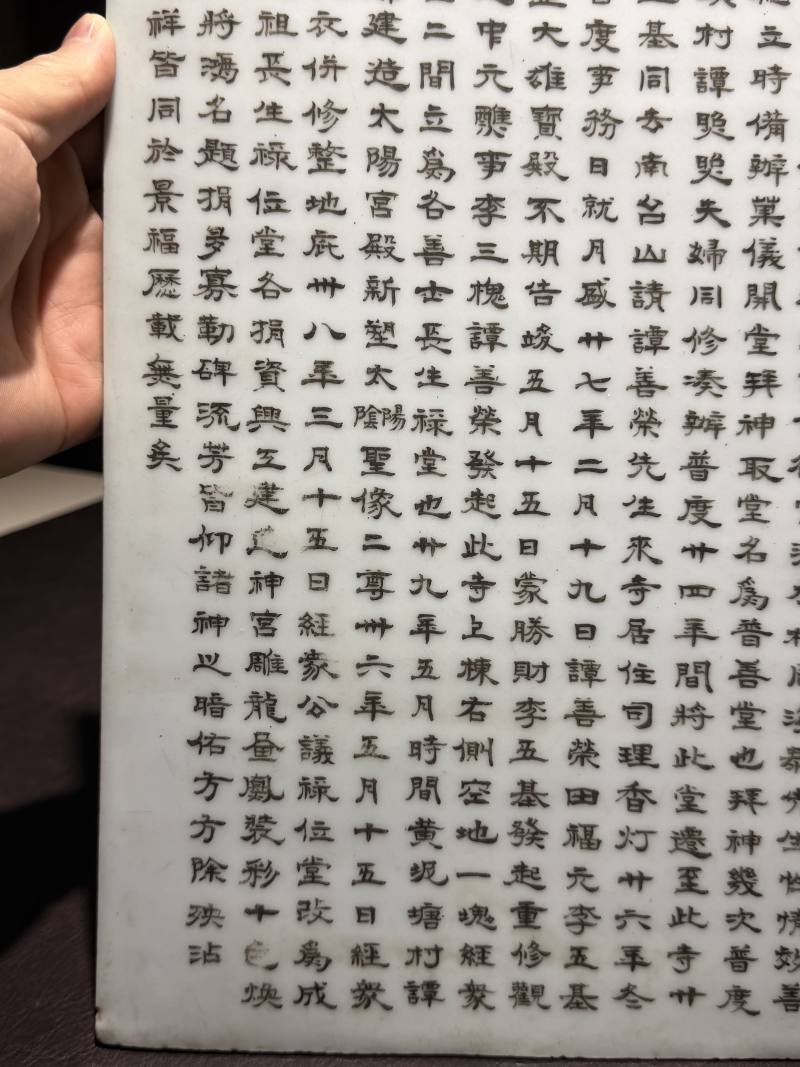 泰先生性情效善
立時備辦菓儀開堂拜神取堂名為普善堂也拜神幾次普度
村譚夫婦同修湊辦普度廿四年間將此堂遷至此寺廿
基同南山請譚善榮先生來寺居住司理香灯廿六年冬
度事務日就月盛廿七年二月十九日譚善榮田福元李五基
大雄寶殿不期告竣五月十五日蒙勝財李五基發起重修觀
中元醮事李三槐譚善榮發起此寺上棟右側空地一塊經衆
二間立為各善士長生祿堂也廿九年五月時間黃坭塘村譚
建造太陽宮殿新塑太陰陽聖像二尊卅六年五月十五日經衆
衣併修整地庇卅八年三月十五日經衆公議祿位堂改為成
祖長生祿位堂各捐資興工建造神宮雕龍畫鳳裝彩十色煥
將鴻名題捐多寡勒碑流芳皆仰諸神之暗佑方方除殃沾
祥皆同於景福歷載無量矣